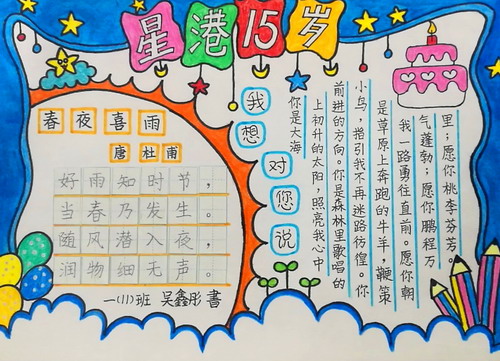 星港15岁
春夜喜雨
唐 杜甫
好雨知时节，
当春乃发生。
随风潜入夜，
润物细无声。
一(11)班 吴鑫彤 書
我想对您说
你是大海
上初升的太阳，照亮我心中
前进的方向。你是森林里歌唱的
小鸟，指引我不再迷路彷徨。你
是草原上奔跑的牛羊，鞭策
我一路勇往直前。愿你朝
气蓬勃；愿你鹏程万
里；愿你桃李芬芳。